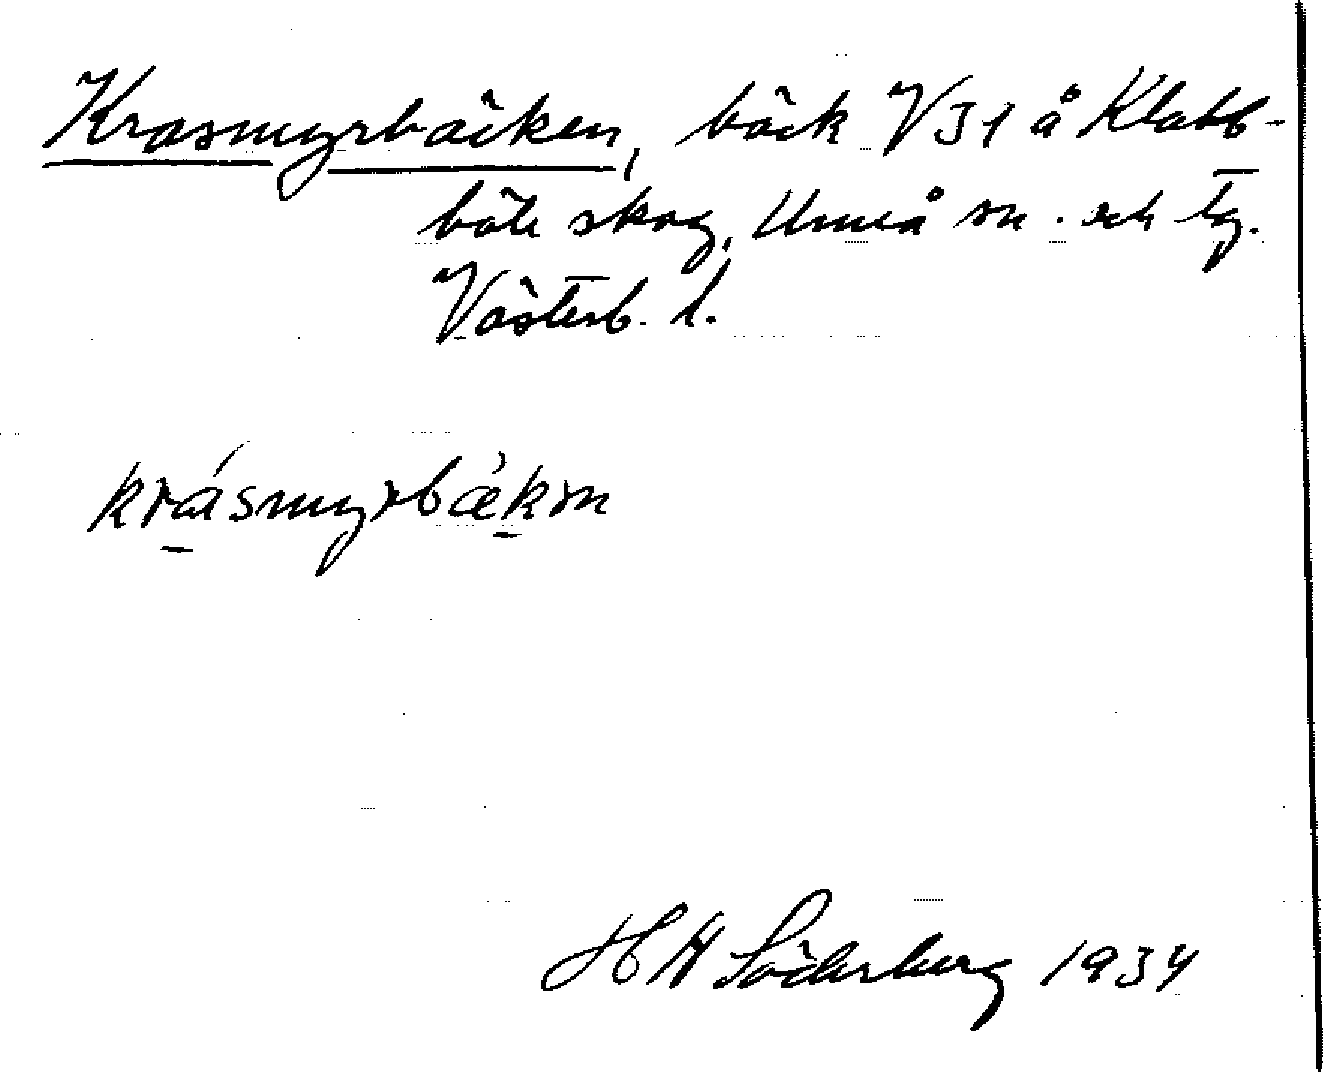 Krasmyrbäcken, bäck V31 å Klabb-
böle skog, Umeå sn. och tg.
Västerb. l.
krásmyrbækɔn
H H Söderberg 1934